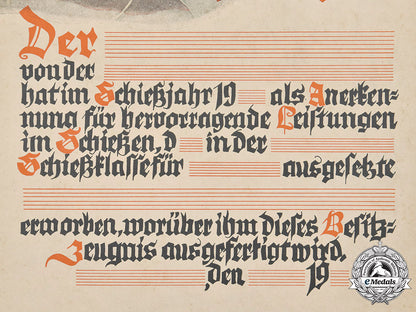 Der
von der
hat im Schießjahr 19 als Anerken-
nung für hervorragende Leistungen
im Schießen, d in der
Schießklasse für ausgesetzte
erworben, worüber ihm dieses Besitz-
Zeugnis ausgefertigt wird.
, den 19
eMedals